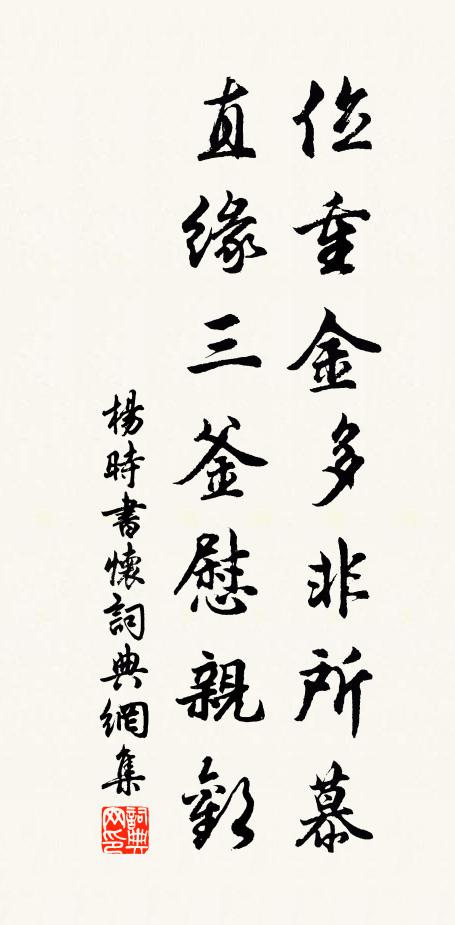 位重金多非所慕
直缘三釜慰親歡
楊時書懷詞典網集
詞典网印